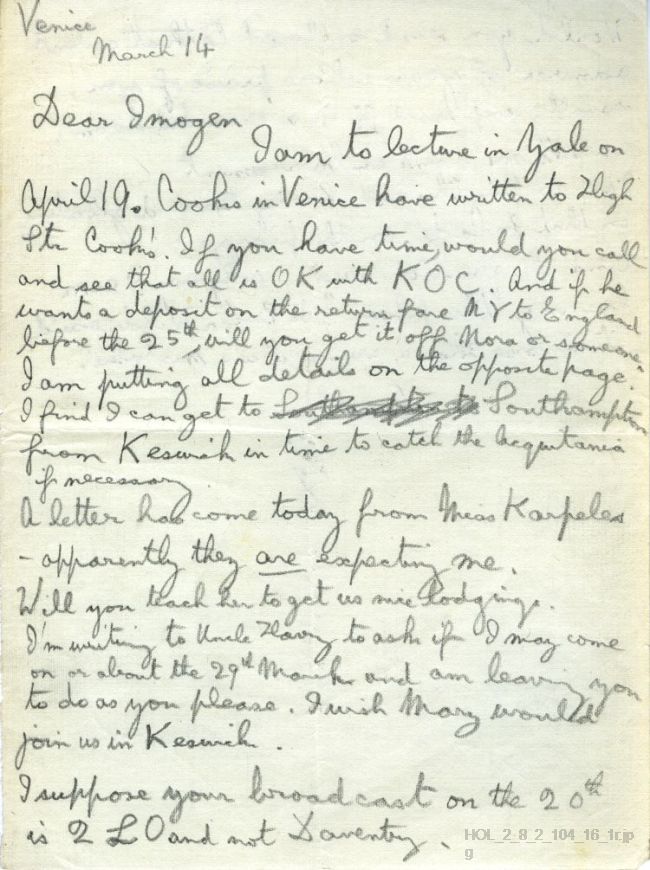 Venice
March 14
Dear Imogen
I am to lecture in Yale on
April 19. Cooks in Venice have written to High
Str Cook's. If you have time, would you call
and see that all is OK with KOC. And if he
wants a deposit on the return fare NY to England
before the 25th, will you get it off Nora or someone.
I am putting all details on the opposite page.
I find I can get to Southampton
from Keswick in time to catch the Acquitania
if necessary
A letter has come today from Miss Karpeles
- apparently they are expecting me.
Will you teach her to get us nice lodgings.
I'm writing to Uncle Harry to ask if I may come
on or about the 29th March and am leaving you
to do as you please. I wish Mary would
join us in Keswick.
I suppose your broadcast on the 20th
is 2 LO and not Daventry.
HOL_2_8_2_104_16_1r.jp
g